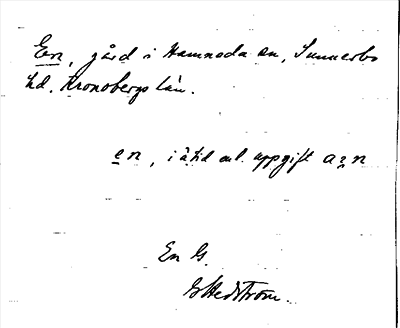 En, gård i Hamneda sn, Sunnerbo
hd. Kronobergs län.
en, i å.tid enl. uppgift
En G.
G Hedström.